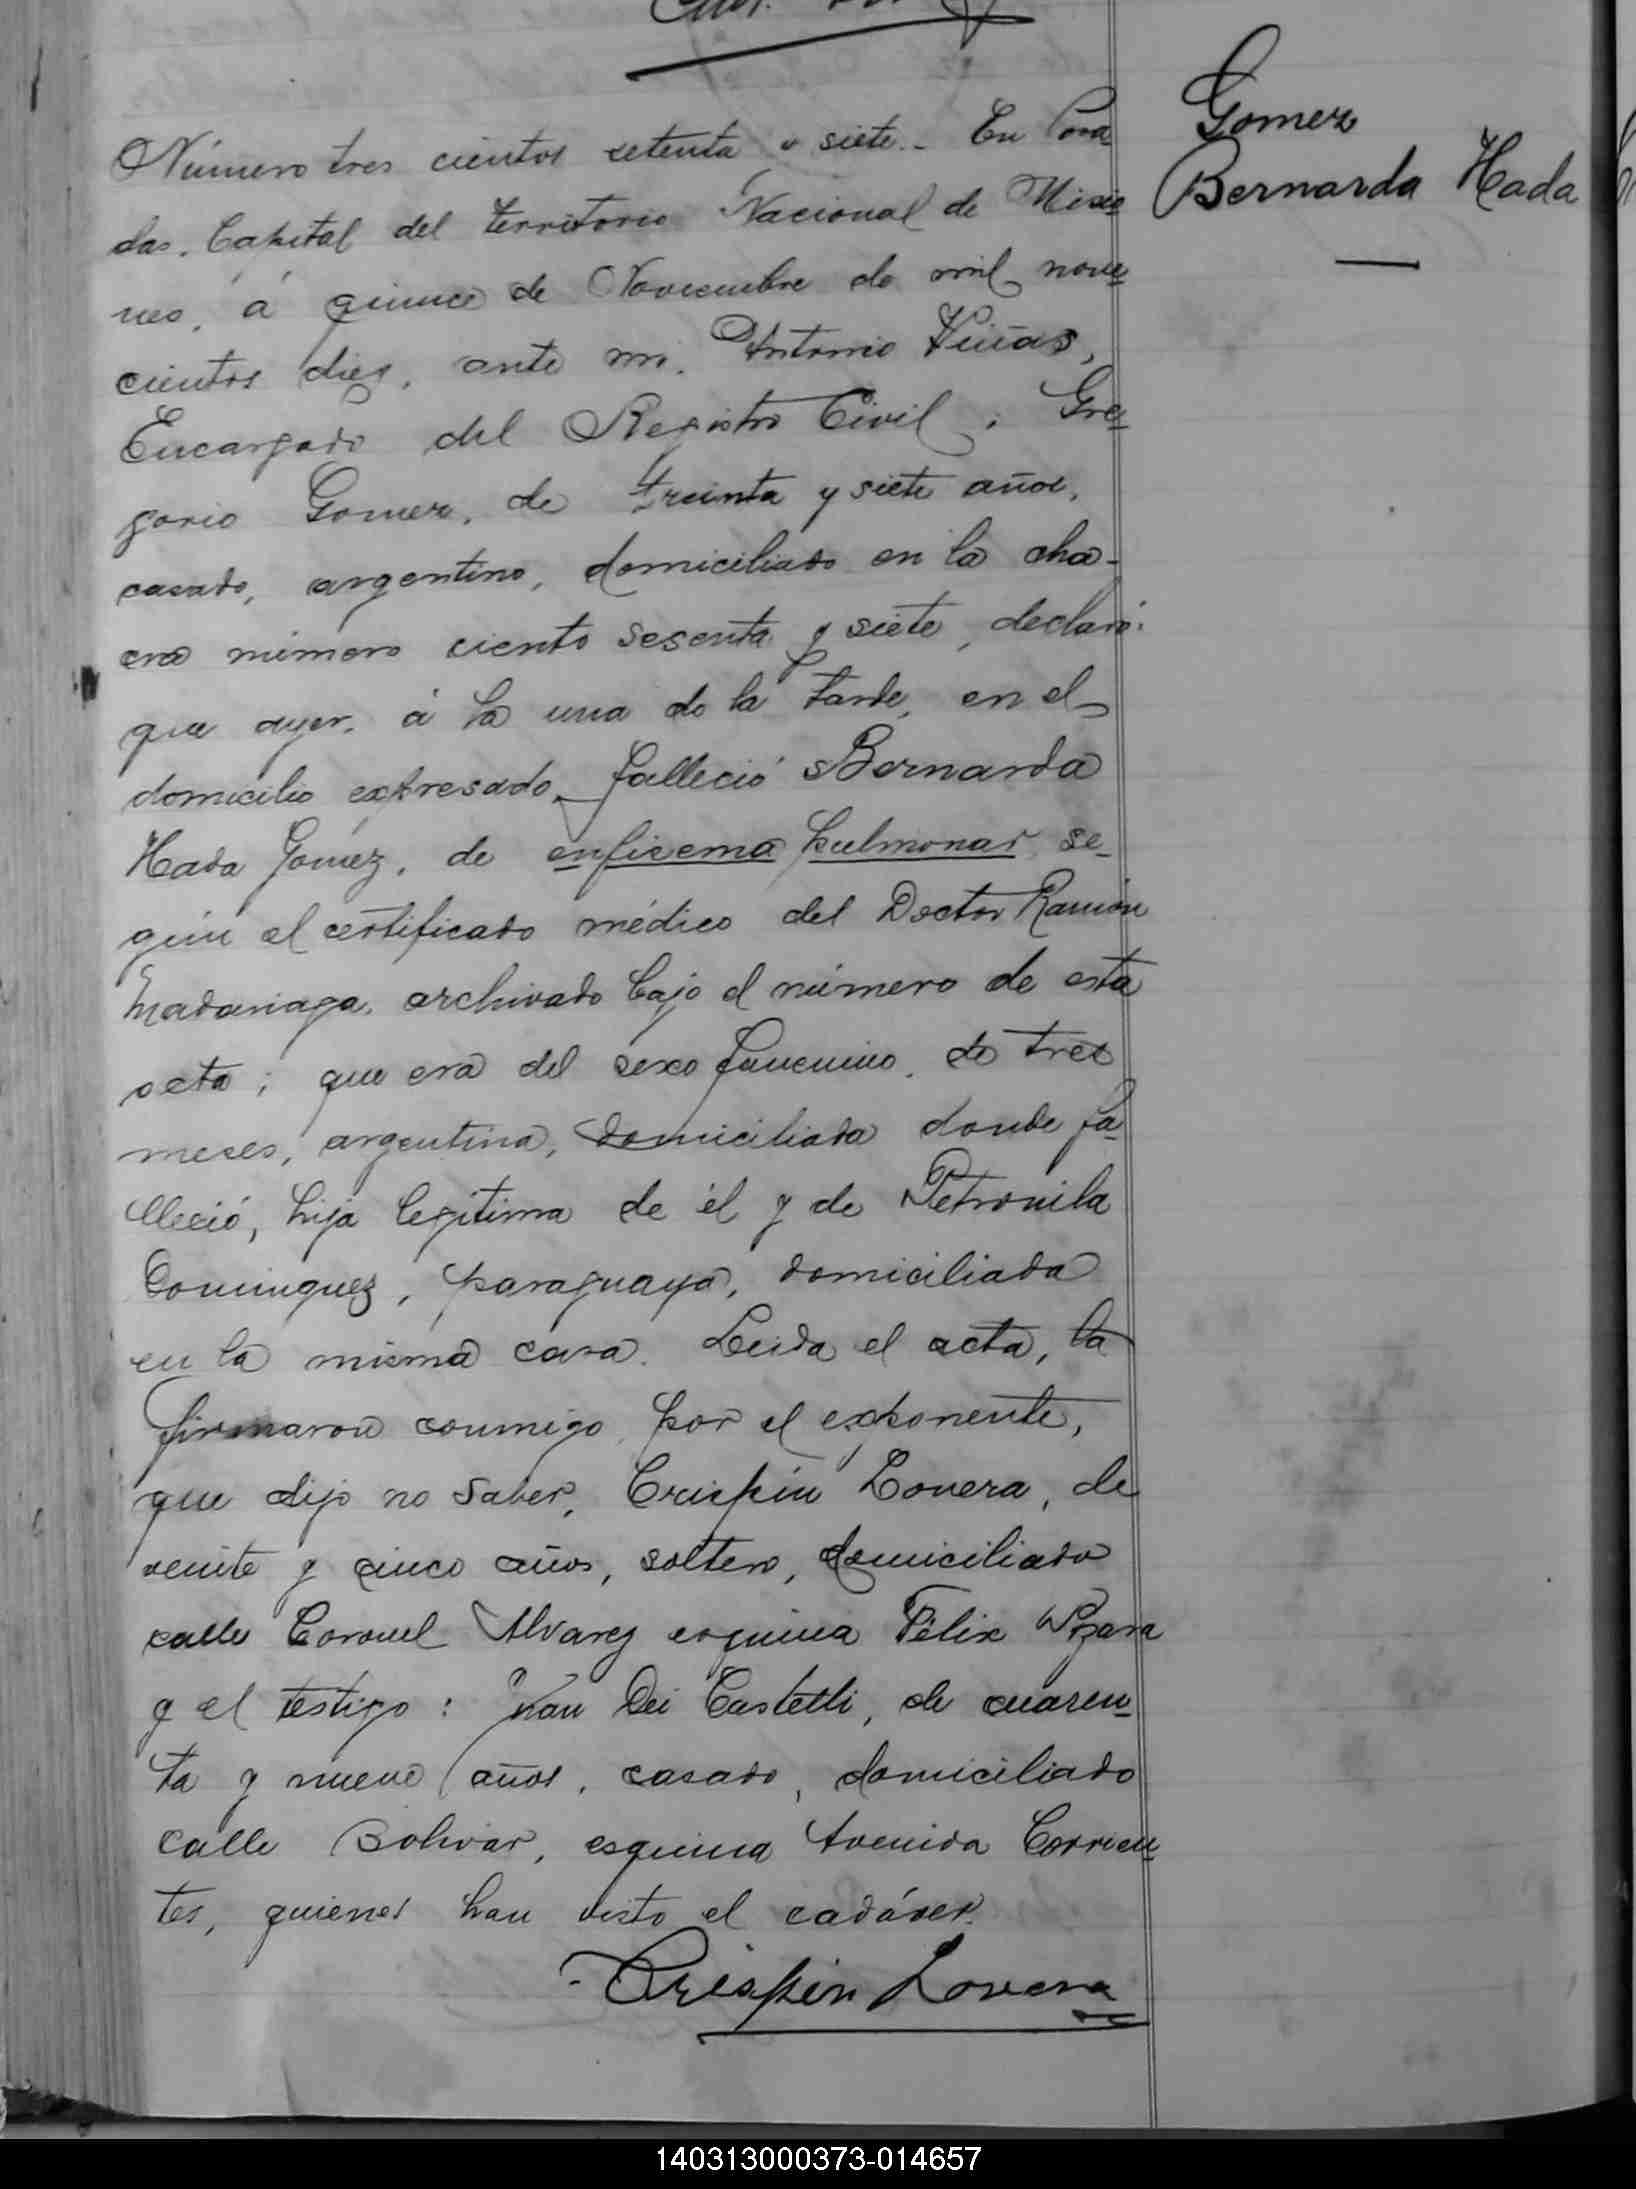 Número tres cientos setenta y siete.- En Posa
das, Capital del Territorio Nacional de Misio
nes, á quince de Noviembre de mil nove-
cientos diez, ante mi, Antonio Viñas,
Encargado del Registro Civil; Gre-
gorio Gomez, de treinta y siete años,
casado, argentino, domiciliado en la cha-
cra número ciento sesenta y siete, declaró:
que ayer, á la una de la tarde, en el
domicilio expresado, falleció Bernarda
Hada Goméz, de enficema pulmonar se-
gún el certificado médico del Doctor Ramón
Madariaga, archivado bajo el número de esta
acta; que era del sexo femenino, de tres
meses, argentina, domiciliada donde fa-
lleció, hija legítima de él y de Petronila
Dominguez, paraguaya, domiciliada
en la misma casa. Leida el acta, la
firmaron conmigo, por el exponente,
que dijo no saber, Crispín Lovera, de
veinte y cinco años, soltero, domiciliado
calle Coronel Alvarez esquina Félix Azara
y el testigo: Juan Dei Castelli, de cuaren-
ta y nueve años, casado, domiciliado
calle Bolivar, esquina Avenida Corrien-
tes, quienes han visto el cadáver.
Crispin Lovera
Gomez
Bernarda Hada
140313000373-014657